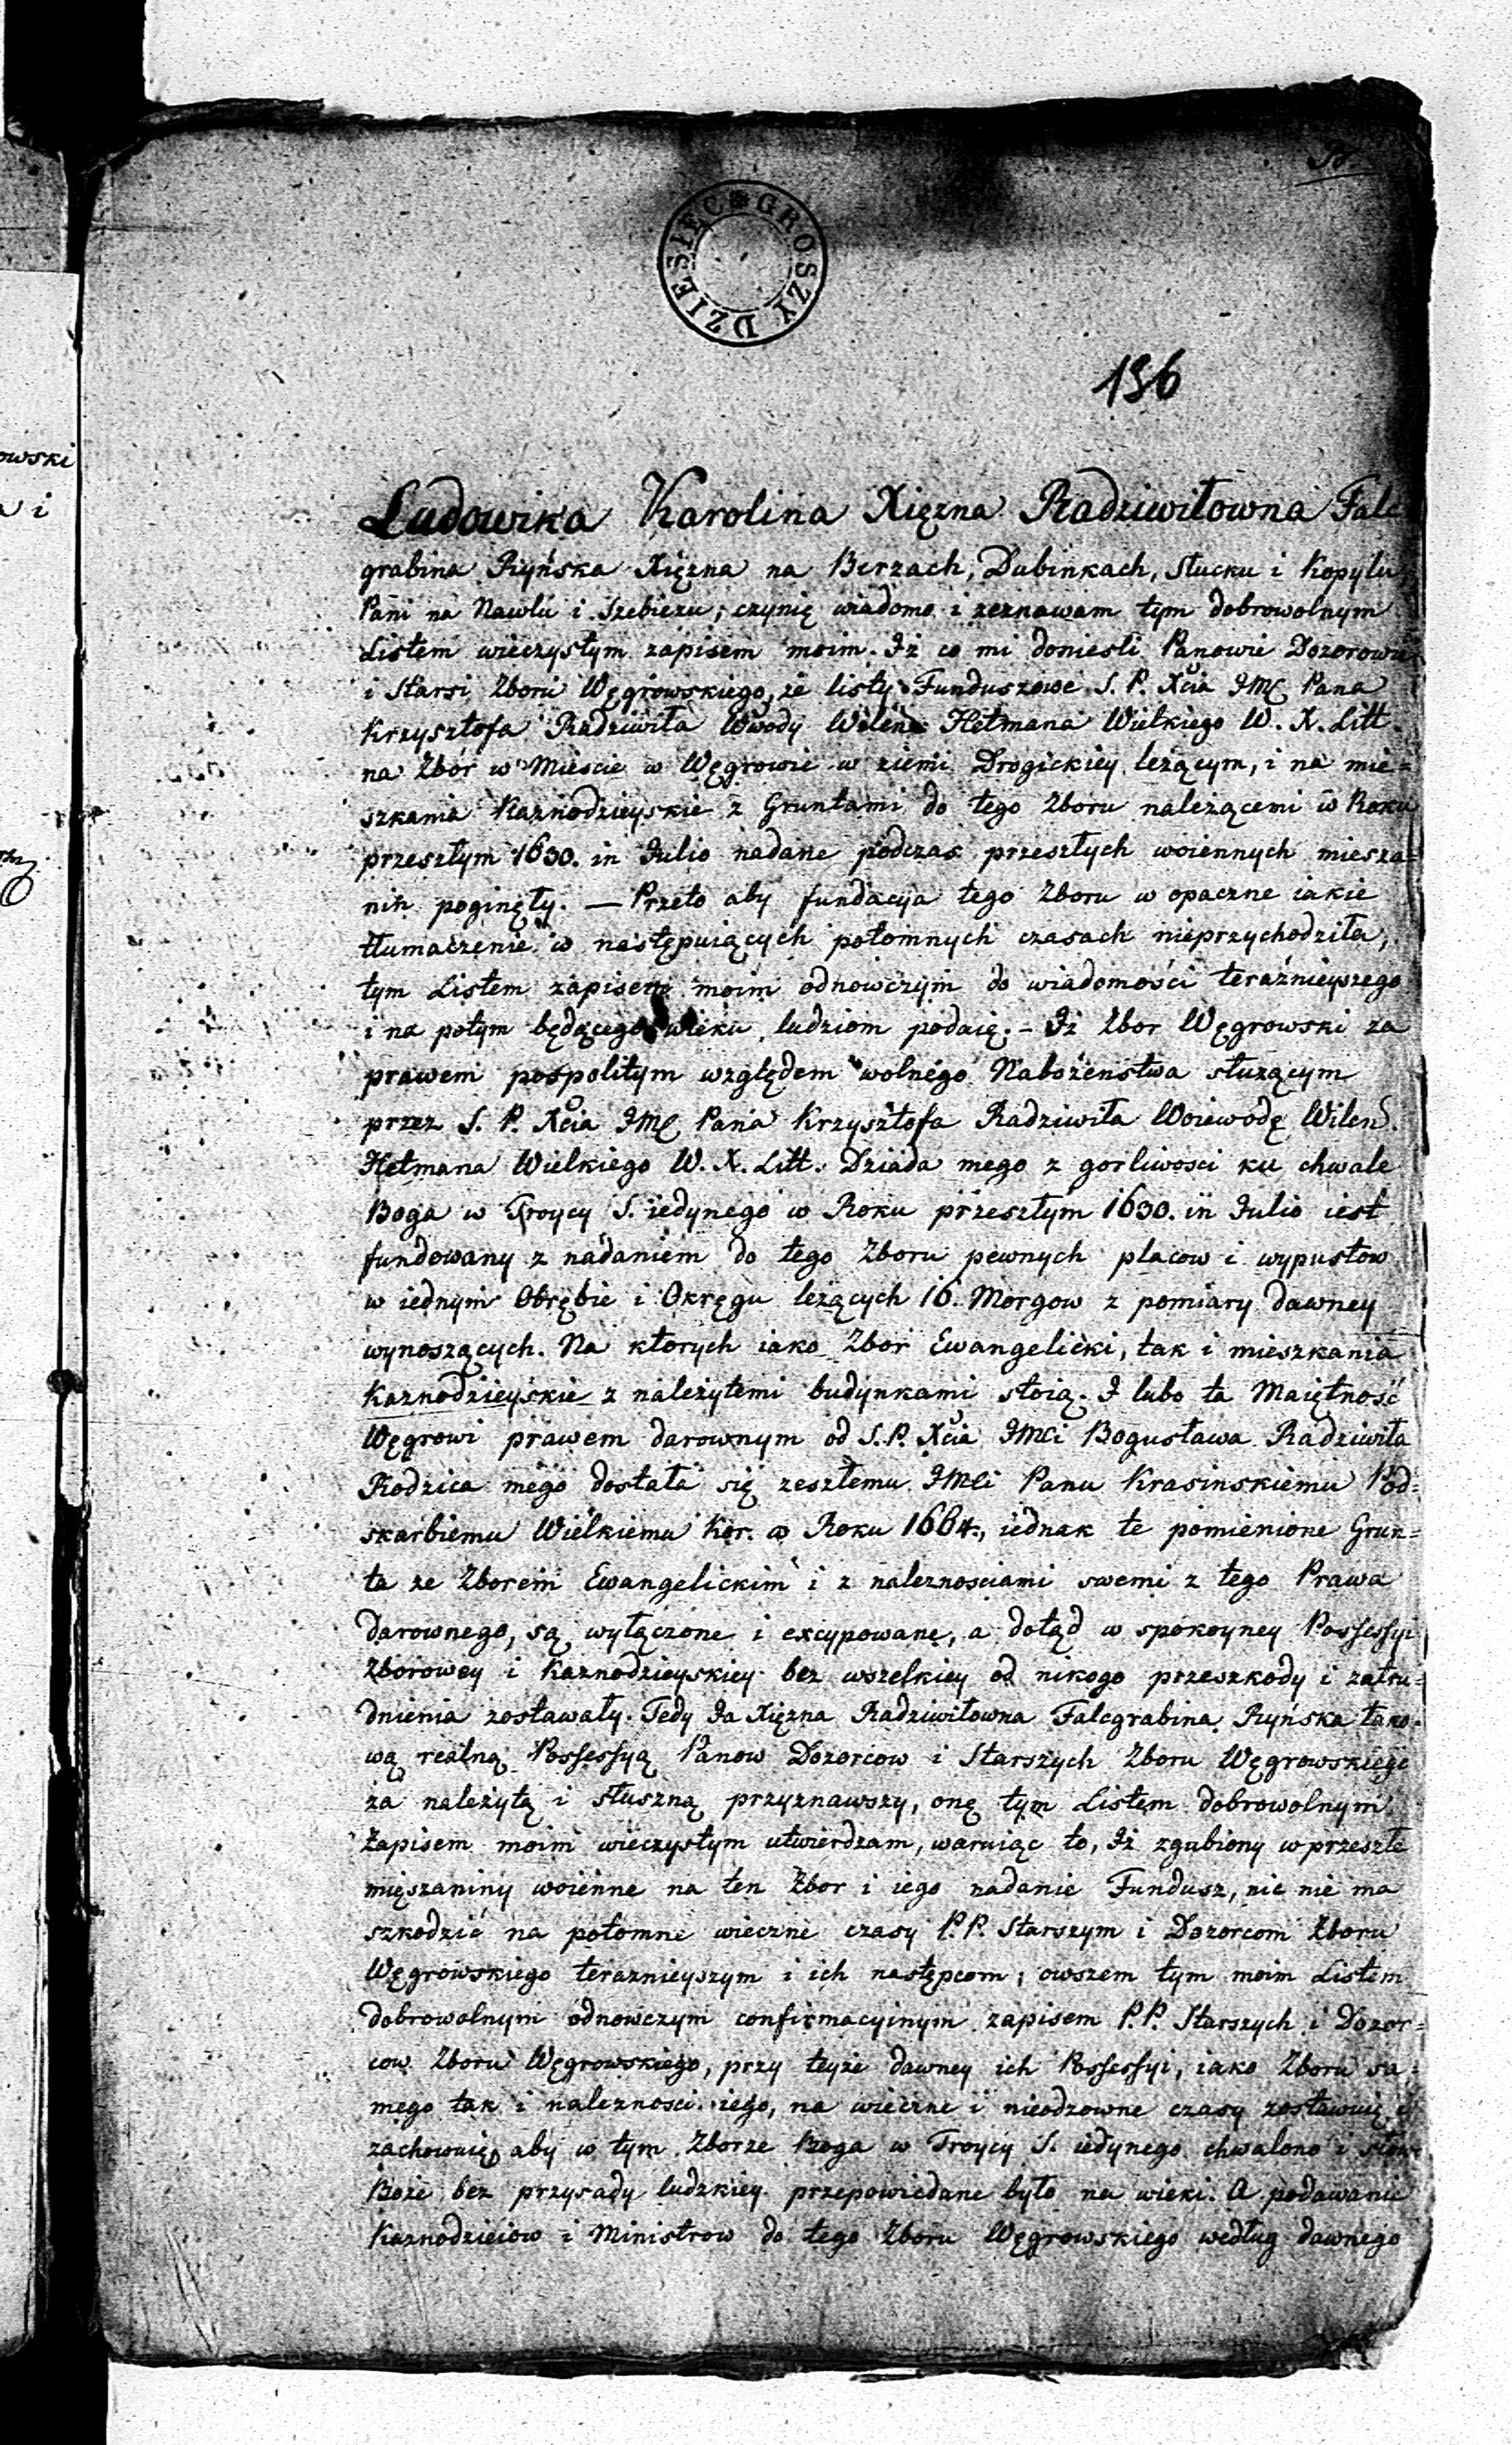 GROSZY DZIESIĘC
196
Ludowika Karolina Xięzna Radziwiłowna Falc
grabina Ryńska Xięzna na Birzach, Dubinkach, Słucku i Kopylu,
Pani na Nawlu i Szebiezu; czynię wiadomo i zeznawam tym dobrowolnym
Listem wieczystym zapisem moim. Iż co mi doniesli Panowie Dozorowie
i Starsi Zboru Węgrowskiego, że listy Funduszowe S. P. Xcia JMC Pana
Krzysztofa Radziwiła Wwody Wilen: Hetmana Wielkiego W. X. Litt.
na Zbór w Miescie w Węgrowie w ziemi Drogickiey leżącym, i na mie=
szkania Kaznodzieyskie z Gruntami do tego Zboru należącemi w Roku
przeszłym 1630. in Julio nadane podczas przeszłych woiennych miesza=
nin poginęły. — Przeto aby fundacyja tego Zboru w opaczne iakie
tłumaczenie w następuiących potomnych czasach nieprzychodziła,
tym Listem zapisem moim odnowczym do wiadomości teraźnieyszego
i na potym będącego wieku ludziom podaię. – Iż Zbor Węgrowski za
prawem pospolitym względem wolnego Nabożenstwa służącym
przez S. P. Xcia JMC Pana Krzysztofa Radziwiła Woiewodę Wilen.
Hetmana Wielkiego W. X. Litt. Dziada mego z gorliwosci ku chwale
Boga w Troycy S. iedynego w Roku przeszłym 1630. in Julio iest
fundowany z nadaniem do tego Zboru pewnych placow i wypustow
w iednym Obrębie i Okręgu leżących 16. Morgow z pomiary dawney
wynoszących. Na ktorych iako Zbor Ewangelicki, tak i mieszkania
Kaznodzieyskie z należytemi budynkami stoią. I lubo ta Maiętność
Węgrowi prawem darownym od S. P. Xcia JMCi Bogusława Radziwiła
Rodzica mego dostała się zeszłemu JMCi Panu Krasinskiemu Pod=
skarbiemu Wielkiemu Kor. w Roku 1664., iednak te pomienione Grun=
ta ze Zborem Ewangelickim i z naleznosciami swemi z tego Prawa
darownego, są wyłączone i excypowane, a dotąd w spokoyney Possessyi
Zborowey i Kaznodzieyskiey bez wszelkiey od nikogo przeszkody i zatru=
dnienia zostawały. Tedy Ja Xięzna Radziwiłowna Falcgrabina Ryńska tako=
wą realną Possessyą Panow Dozorcow i Starszych Zboru Węgrowskiego
za należytą i słuszną przyznawszy, onę tym Listem dobrowolnym
Zapisem moim wieczystym utwierdzam, waruiąc to, Iż zgubiony w przeszłe
mięszaniny woienne na ten Zbor i iego nadanie Fundusz, nic nie ma
szkodzić na potomne wieczne czasy P.P. Starszym i Dozorcom Zboru
Węgrowskiego teraznieyszym i ich następcom; owszem tym moim Listem
dobrowolnym odnowczym confirmacyinym zapisem P.P. Starszych i Dozor=
cow Zboru Węgrowskiego, przy teyże dawney ich Possessyi, iako Zboru sa=
mego tak i naleznosci iego, na wieczne i nieodzowne czasy zostawuię i
zachowuię, aby w tym Zborze Boga w Troycy S. iedynego chwalono i słowo
Boże bez przysady ludzkiey przepowiedane było na wieki. A podawanie
Kaznodzieiow i Ministrow do tego Zboru Węgrowskiego według dawnego